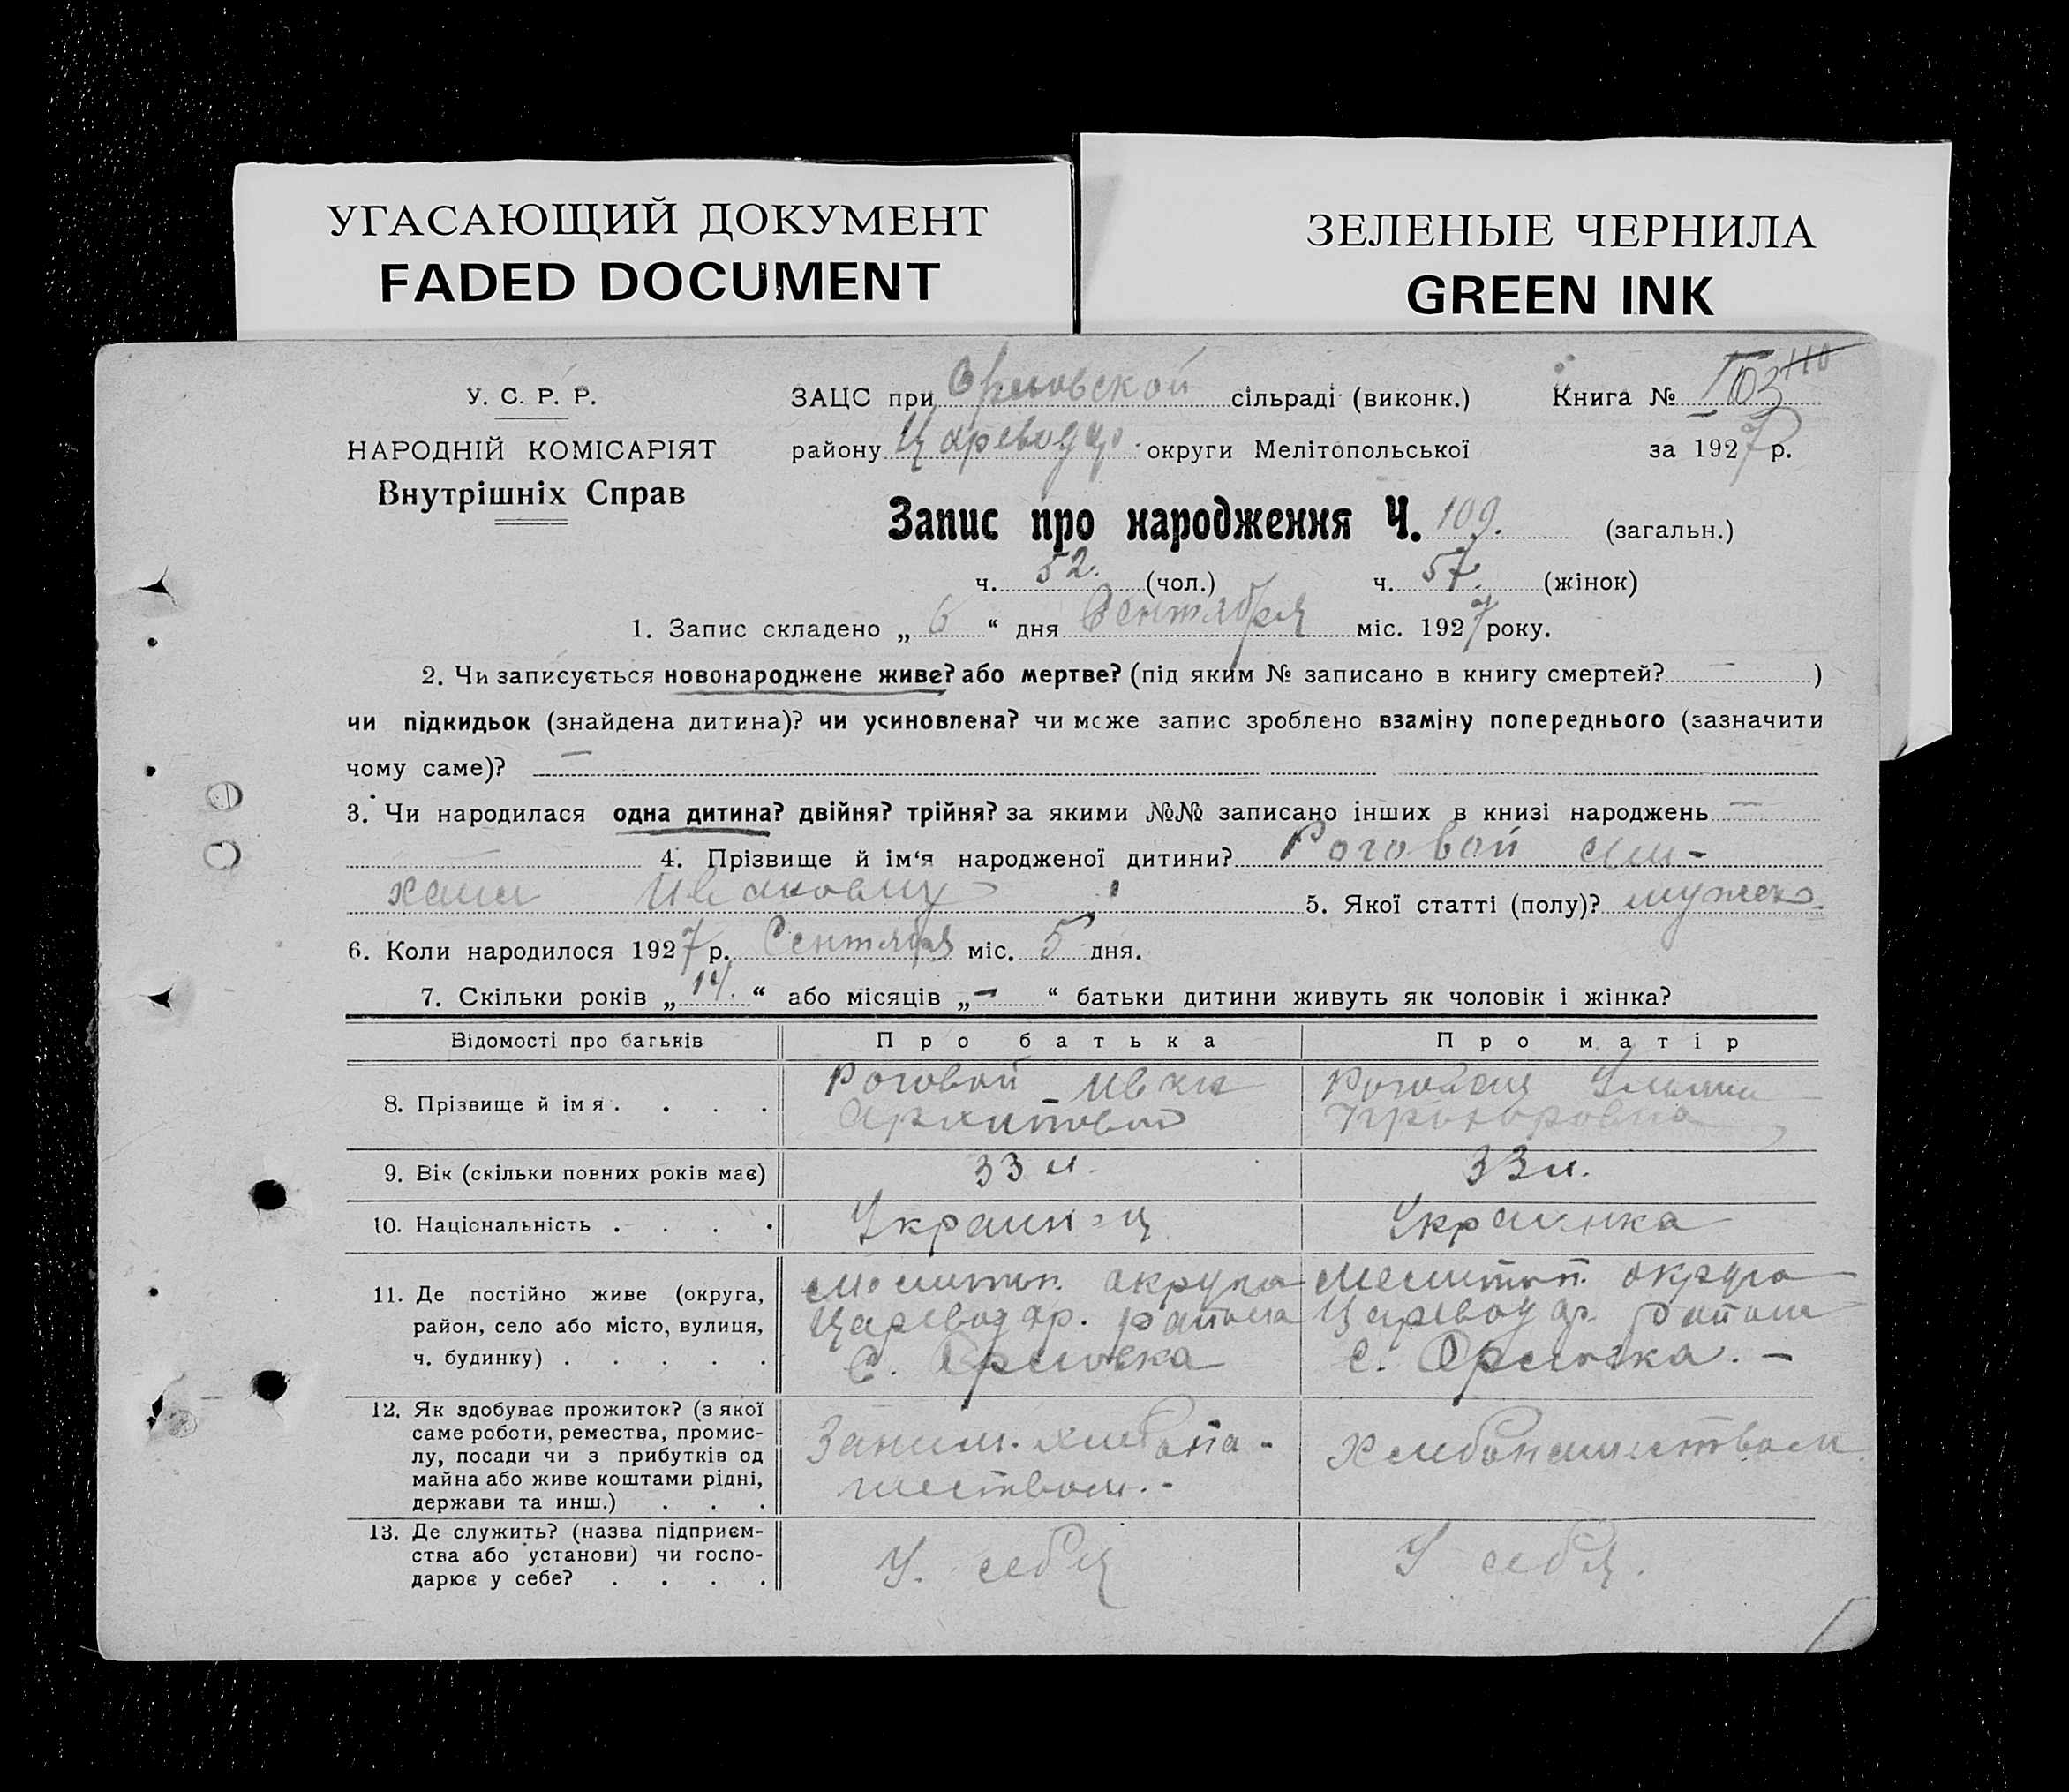 УГАСАЮЩИЙ ДОКУМЕНТ
FADED DOCUMENT
ЗЕЛЕНЫЕ ЧЕРНИЛА
GREEN INK
У. С. Р. Р.
НАРОДНІЙ КОМІСАРІЯТ
Внутрішніх Справ
ЗАЦС при Орловской сільраді (виконк.) Книга №
району Царевод др. округи Мелітопольської за 1927 р.
Запис про народження Ч. 109. (загальн.)
ч. 52. (чол.) ч. 57. (жінок)
1. Запис складено „ 6 “ дня Сентября міс. 1927 року.
2. Чи записується новонароджене живе? або мертве? (під яким № записано в книгу смертей? — )
чи підкидьок (знайдена дитина)? чи усиновлена? чи може запис зроблено взаміну попереднього (зазначити
чому саме)? —
3. Чи народилася одна дитина? двійня? трійня? за якими №№ записано інших в книзі народжень —
4. Прізвище й ім‘я народженої дитини? Роговой Ми-
хаил Иванович 5. Якої статті (полу)? мужск.
6. Коли народилося 1927 р. Сентября міс. 5 дня.
7. Скільки років „ 14. “ або місяців „ — “ батьки дитини живуть як чоловік і жінка?
Відомості про батьків Про батька Про матір
8. Прізвище й імя . . . . Роговой Иван Роговая
Архипович
9. Вік (скільки повних років має) 33 л. 33 л.
10. Національність . . . . Украинец Украинка
11. Де постійно живе (округа, Мелитоп. округа Мелитоп. округа
район, село або місто, вулиця, Царевод др. района Царевод др. района
ч. будинку) . . . . . С. Орловка С. Орловка. —
12. Як здобуває прожиток? (з якої
саме роботи, ремества, промис-
лу, посади чи з прибутків од Заним. хлебопа- Хлебопашеством
майна або живе коштами рідні, шеством. -
держави та инш.) . . .
13. Де служить? (назва підприєм-
ства або установи) чи госпо- У себя У себя.
дарює у себе? . . . .